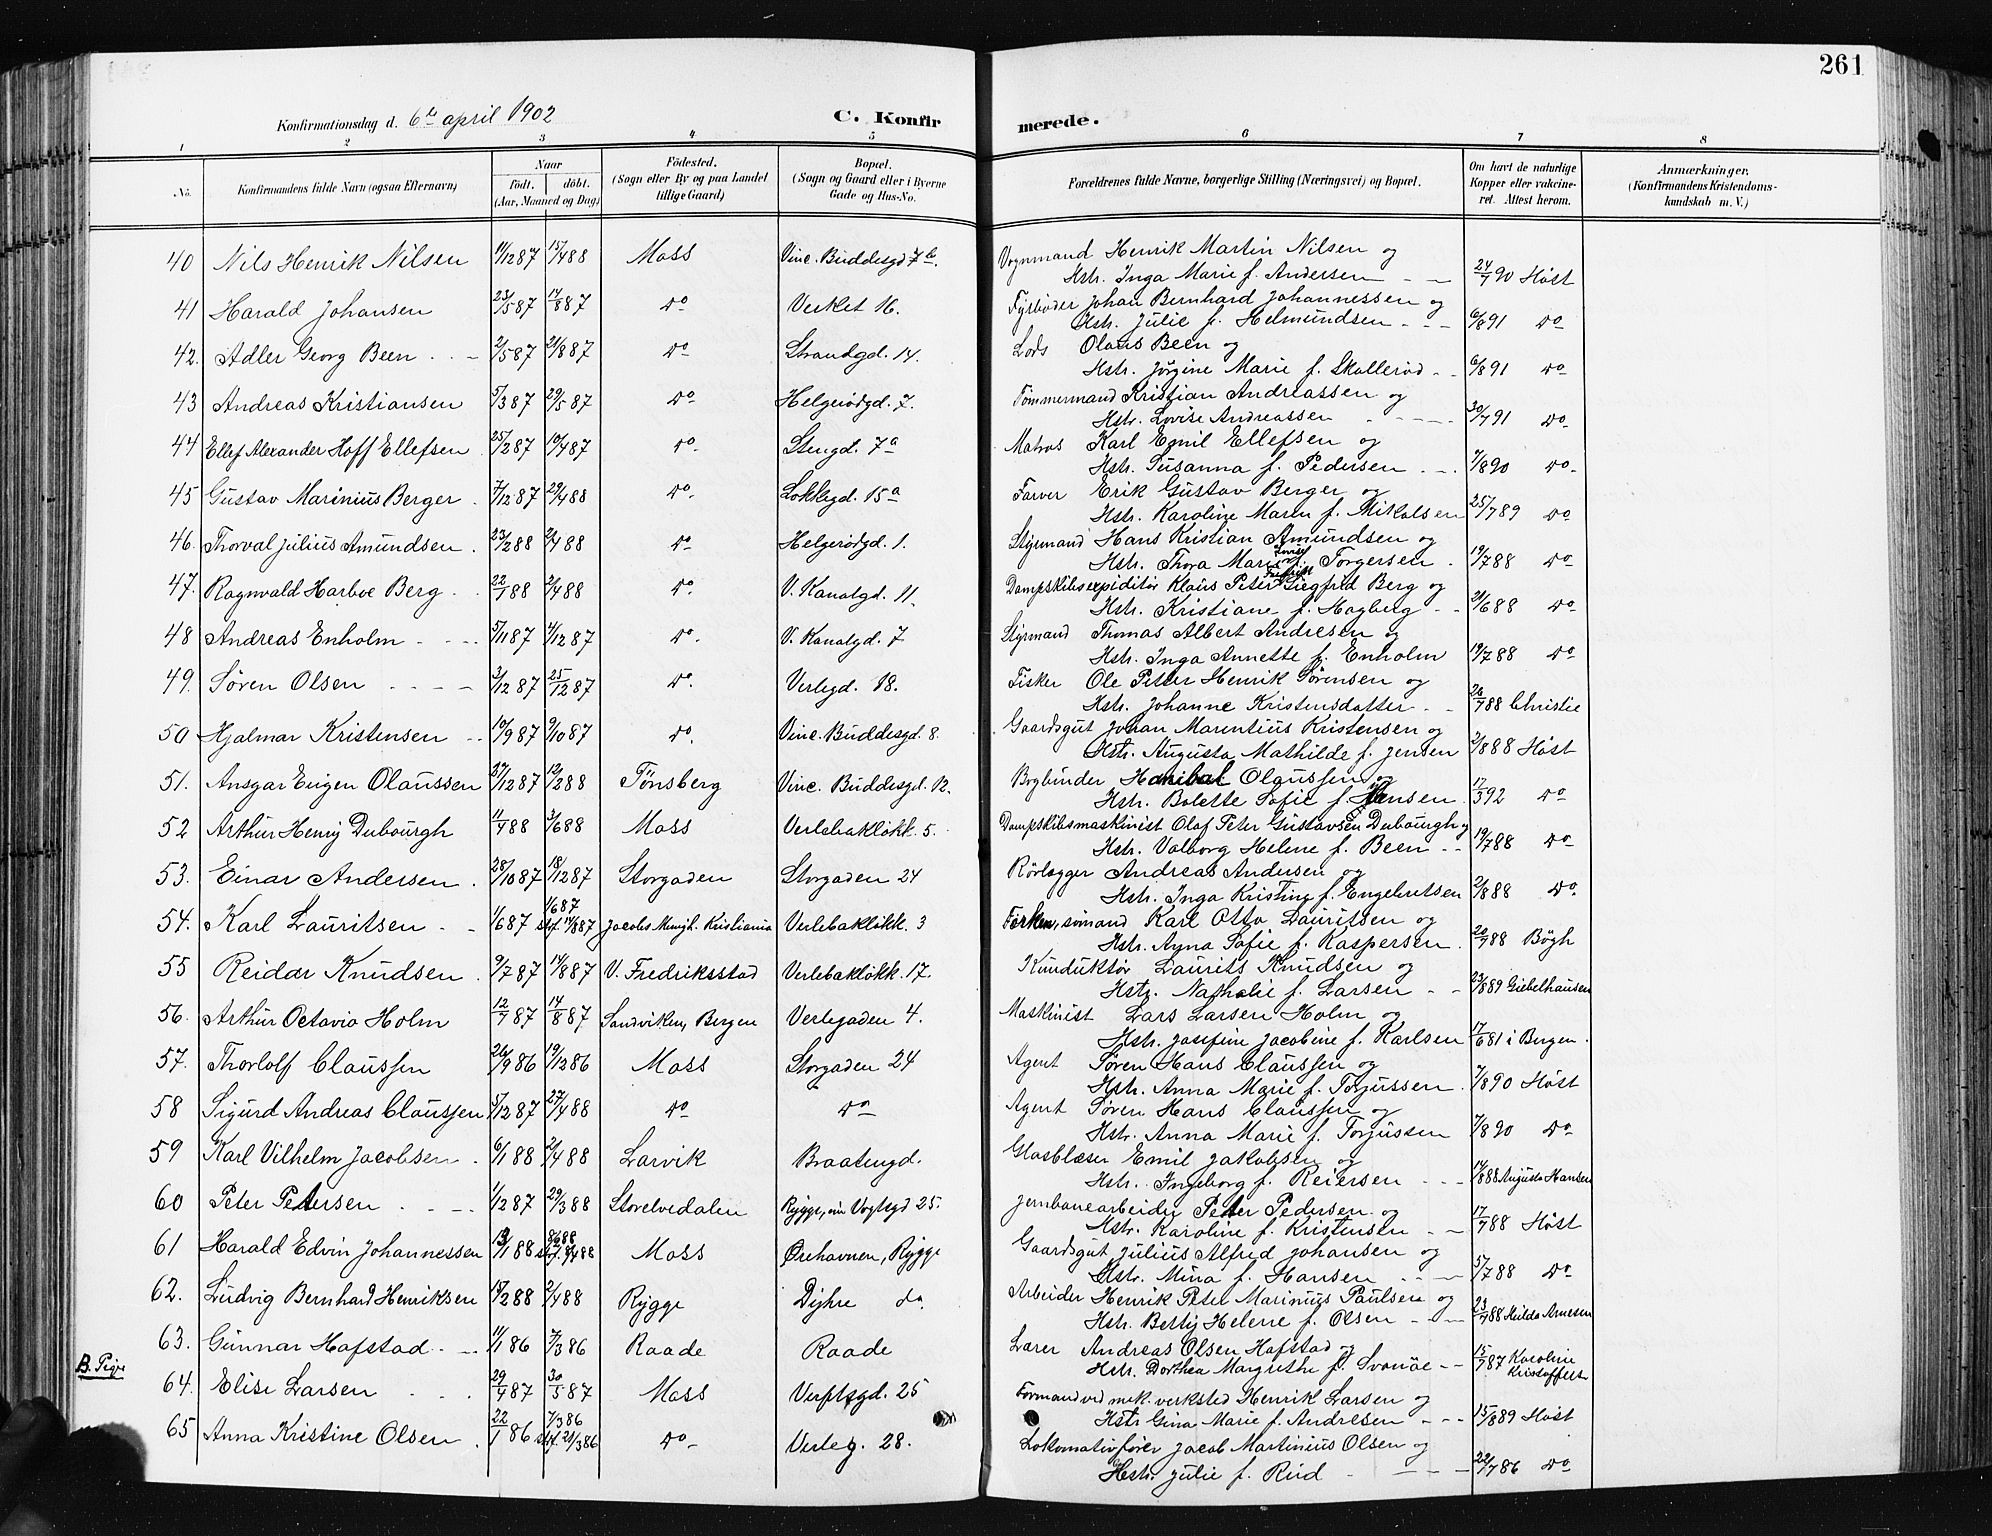 261
Konfirmationsdag d. 6te april 1902
C. Konfirmerede.
1 2 3 4 5 6 7 8
No. Konfirmandens fulde Navn (ogsaa Efternavn) Naar Födt. döbt. (Aar, Maaned og Dag) Födested. (Sogn eller By og paa Landet tillige Gaard) Bopæl. (Sogn og Gaard eller i Byerne Gade og Hus-No. Forældrenes fulde Navne, borgerlige Stilling (Næringsvei) og Bopæl. Om havt de naturlige Kopper eller vakcineret. Attest herom. Anmærkninger, (Konfirmandens Kristendomskundskab m. V.)
40 Nils Henrik Nilsen 11/12 87 15/4 88 Moss Vinc. Buddesgd 7b. Vognmand Henrik Martin Nilsen og
Hstr. Inga Marie f. Andersen 24/7 90 Höst
41 Harald Johansen 23/5 87 14/8 87 Do Verket 16. Fyrbøder Johan Bernhard Johannessen og
Hstr. Julie f. Helmundsen 6/8 91 Do
42. Adler Georg Been 2/5 87 21/8 87 Do Strandgd. 14. Lods Olaus Been og
Hstr. Jørgine Marie f. Skallerød 6/8 91 Do
43 Andreas Kristiansen 5/3 87 29/5 87 Do Helgerödgd. 7. Tömmermand Kristian Andreassen og
Hstr. Lovise Andreassen 30/7 91 Do
44 Ellef Alexander Hoff Ellefsen 25/2 87 10/4 87 Do. Stengd. 7a Matros Karl Emil Ellefsen og
Hstr. Susanna f. Pedersen 7/8 90 Do
45 Gustav Marinius Berger 7/12 87 29/4 88 Do. Lokkegd. 15a Farver Erik Gustav Berger og
Hstr. Karoline Maren f. Mikalsen 25/7 89 Do
46. Thorval Julius Amundsen 23/2 88 2/4 88 Do Helgerödgd. 1. Styrmand Hans Kristian Amundsen og
Hstr. Thora Marie f. Torgersen 19/7 88 Do
47. Ragnvald Harboe Berg 22/1 88 2/4 88 Do. V. Kanalgd. 11. Dampskibsexpiditör Klaus Peter Siegfrid Berg og
Hstr. Kristiane f. Hagberg 21/6 88 Do
48 Andreas Enholm 5/11 87 4/12 87 Do. V. Kanalgd. 7 Styrmand Thomas Albert Andresen og
Hstr. Inga Annette f. Enholm 19/7 88 Do
49. Søren Olsen 3/12 87 25/12 87 Do. Verlegd. 18. Fisker Ole Peter Henrik Sørensen og
Hstr. Johanne Kristensdatter 26/7 88 Christie
50 Hjalmar Kristensen 10/9 87 9/10 87 Do. Vinc. Buddesgd. 8. Gaardsgut Johan Marentius Kristensen og
Hstr. Augusta Mathilde f. Jensen 2/8 88 Höst
51. Ansgar Eugen Olaussen 27/12 87 12/2 88 Tönsberg Vinc. Buddesgd. 12. Bogbinder Hanibal Olaussen og
Hstr. Bolette Sofie f. Hansen 17/3 92 Do
52 Arthur Henry Dubourgh 11/4 88 3/6 88 Moss Verlebakløkk. 5. Dampskibsmaskinist Olaf Peter Gustavsen Dubourgh og
Hstr. Valborg Helene f. Been 19/7 88 Do
53. Einar Andersen 28/10 87 18/12 87 Storgaden Storgaden 24 Rörlægger Andreas Andersen og
Hstr. Inga Kristine f. Engebretsen 2/8 88 Do.
54. Karl Lauritsen 1/6 87 1/6 87 stf. 14/8 87 Jacobs Menigh. Kristiania Verlebakløkk. 3 sömand Karl Otto Lauritsen og
Hstr. Agna Sofie f. Kaspersen 20/7 88 Bögh
55 Reidar Knudsen 9/7 87 14/8 87 V. Fredriksstad Verlebakløkk. 17. Kunduktör Laurits Knudsen og
Hstr. Nathalie f. Larsen 23/8 89 Giebelhausen
56. Arthur Octavio Holm 12/7 87 14/8 87 Sandviken, Bergen Verlegaden 4. Maskinist Lars Larsen Holm og
Hstr. Josefine Jacobine f. Karlsen 17/6 81 i Bergen.
57. Thorlolf Claussen 26/9 86 19/12 86 Moss Storgaden 24 Agent Søren Hans Claussen og
Hstr. Anna Marie f. Torjussen 7/8 90 Höst
58 Sigurd Andreas Claussen 5/12 87 27/4 88 Do Do Agent Søren Hans Claussen og
Hstr. Anna Marie f. Torjussen 7/8 90 Do
59 Karl Vilhelm Jacobsen 6/1 88 2/4 88 Larvik Braatengd. Glasblæser Emil Jakobsen og
Hstr. Ingeborg f. Reiersen 14/8 88 Augusta Hansen
60 Peter Petersen 1/12 87 29/3 88 Storelvedalen Rygge, Vogtsgd 25. Jernbanearbeider Peter Pedersen og
Hstr. Karoline f. Kristensen 17/7 88 Höst
61 Harald Edvin Johannessen 13/1 88 stf. 8/4 88 Moss Ørehavnen, Rygge Gaardsgut Julius Alfred Johansen og
Hstr. Mina f. Hansen 5/7 88 Do
62. Ludvig Bernhard Henriksen 17/2 88 2/4 88 Rygge Dyhre do. Arbeider Henrik Peter Marinius Paulsen og
Hstr. Betty Helene f. Olsen 23/7 88 Hulda Arnesen
63. Gunnar Hafstad 11/1 86 7/3 86 Raade Raade Lærer Andreas Olsen Hafstad og
Hstr. Dorthea Margrethe f. Svanöe 15/7 87 Karoline Kristoffers
B. Pige
64. Elise Larsen 29/4 87 30/5 87 Moss Verftsgd. 25 Formand ved mek. verksted Henrik Larsen og
Hstr Gina Marie f. Andresen 15/8 89 Höst
65 Anna Kristine Olsen 22/1 86 7/3 86 stf. 21/3 86 Do Verleg. 28. Lokomotivförer Jacob Martinius Olsen og
Hstr. Julie f. Rud 22/7 86 Do